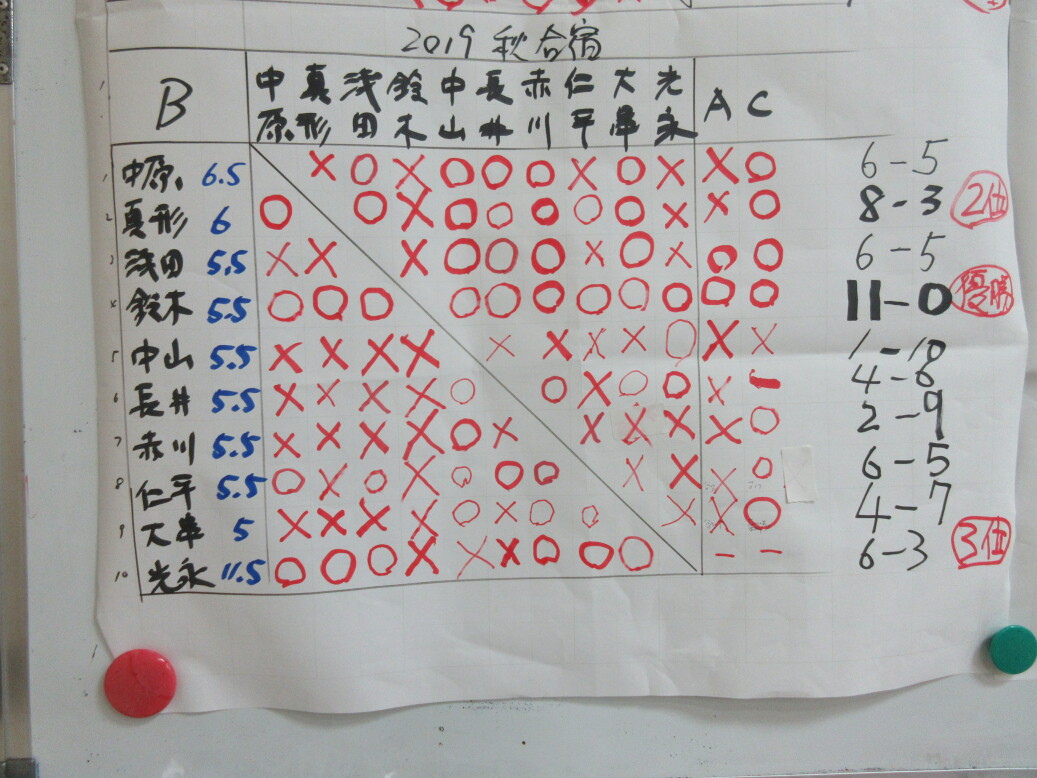 2019 秋合宿
B 中原 真形 浅田 鈴木 中山 長井 赤川 仁平 大串 光永 A C
1 中原 6.5 × ○ × ○ ○ ○ × ○ × × ○ 6-5
2 真形 6 ○ ○ × ○ ○ ○ ○ ○ × × ○ 8-3 2位
3 浅田 5.5 × × × ○ ○ ○ × ○ × ○ ○ 6-5
4 鈴木 5.5 ○ ○ ○ ○ ○ ○ ○ ○ ○ ○ ○ 11-0 優勝
5 中山 5.5 × × × × × × × × ○ × × 1-10
6 長井 5.5 × × × × ○ ○ × ○ ○ × - 4-6
7 赤川 5.5 × × × × ○ × × × × × ○ 2-9
8 仁平 5.5 ○ × ○ × ○ ○ ○ × × × ○ 6-5
9 大串 5 × × × × ○ × ○ ○ × × ○ 4-7
10 光永 11.5 ○ ○ ○ × × × ○ ○ ○ - - 6-3 3位